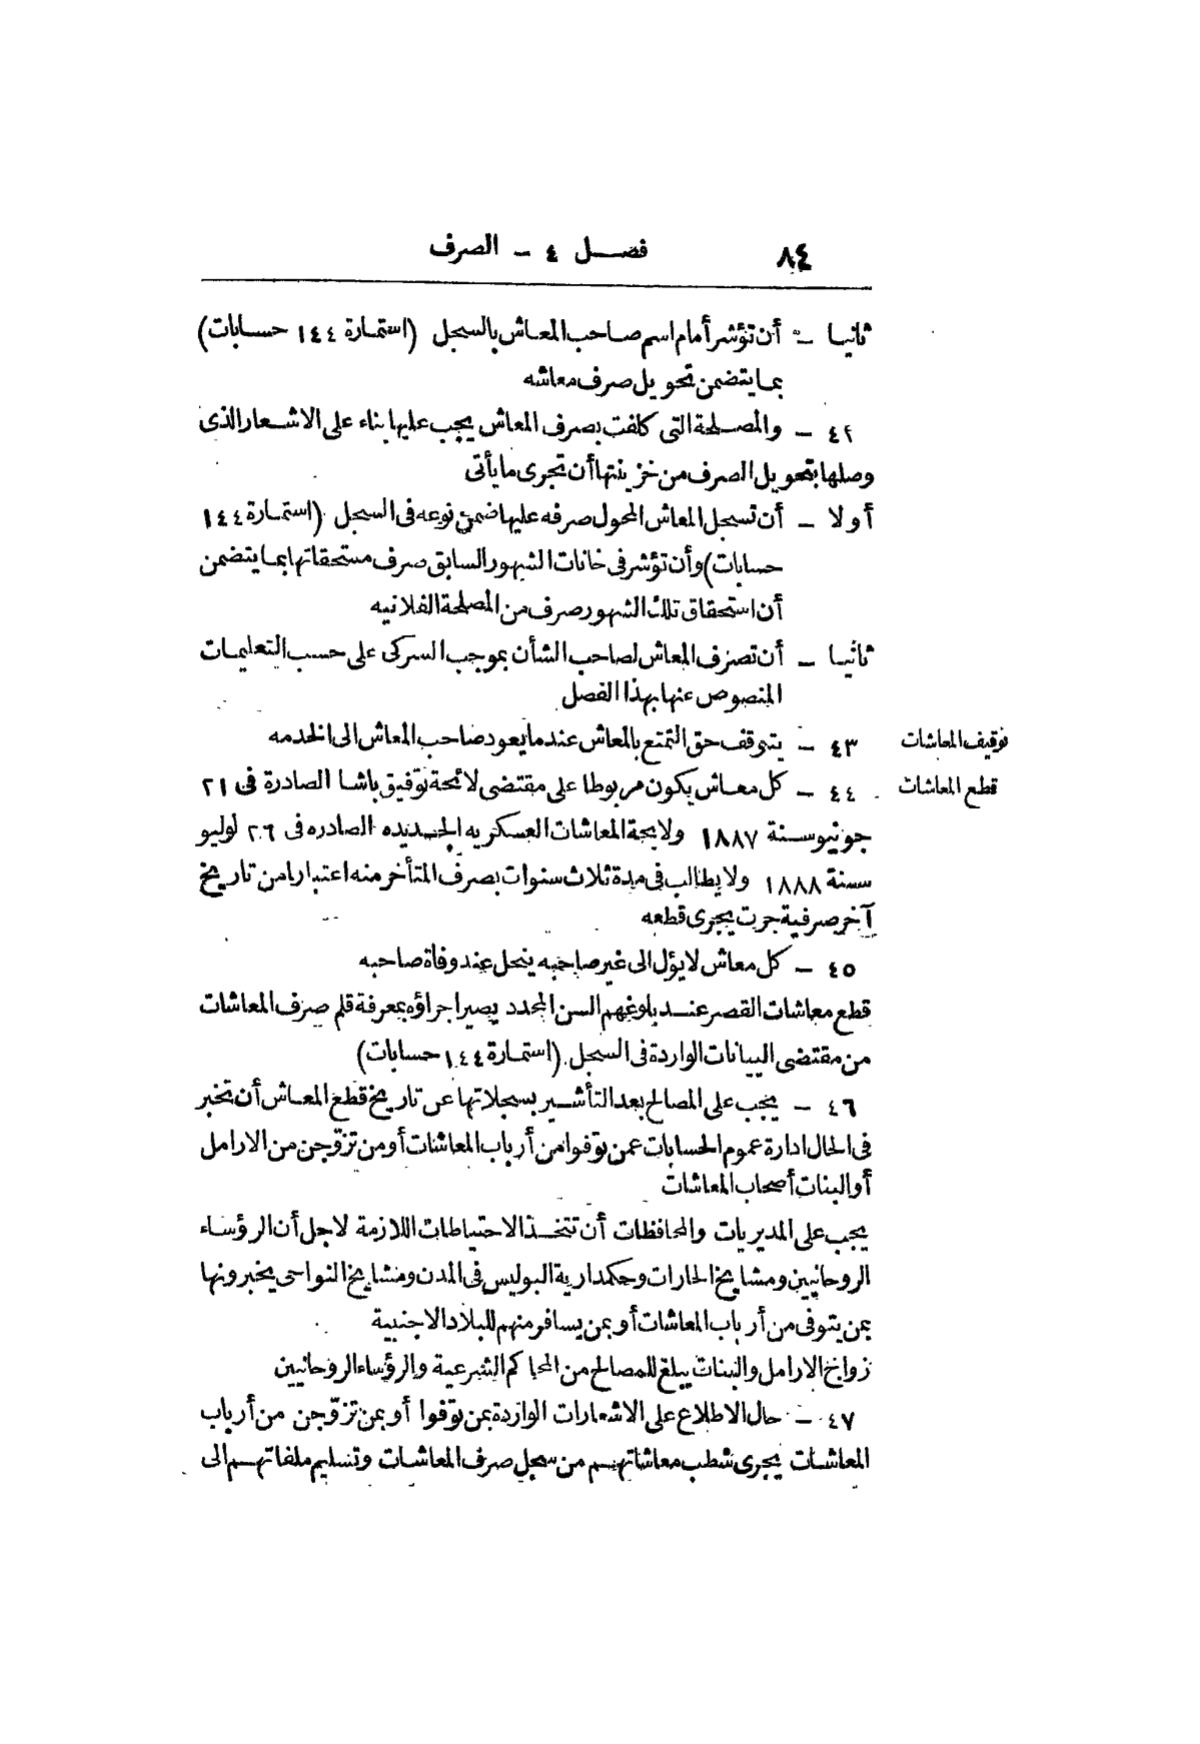 ٨٤ فصل ٤ – الصرف
ثانيا – أن تؤشر أمام اسم صاحب المعاش بالسجل (استمارة ١٤٤ حسابات)
بما يتضمن تحويل صرف معاشه
٤٢ – والمصلحة التى كلفت بصرف المعاش يجب عليها بناء على الاشعار الذى
وصلها بتحويل الصرف من خزينتها أن تجرى ما يأتى
أولا – أن تسجل المعاش المحول صرفه عليها ضمن نوعه فى السجل (استمارة ١٤٤
حسابات) وأن تؤشر فى خانات الشهور السابق صرف مستحقاتها بما يتضمن
أن استحقاق تلك الشهور صرف من المصلحة الفلانيه
ثانيا – أن تصرف المعاش لصاحب الشأن بموجب السركى على حسب التعليمات
المنصوص عنها بهذا الفصل
توقيف المعاشات ٤٣ – يتوقف حق التمتع بالمعاش عندما يعود صاحب المعاش الى الخدمه
قطع المعاشات ٤٤ – كل معاش يكون مربوطا على مقتضى لائحة توفيق باشا الصادرة فى ٢١
جونيو سنة ١٨٨٧ ولايحة المعاشات العسكريه الجديده الصادره فى ٢٦ لوليو
سنة ١٨٨٨ ولا يطالب فى مدة ثلاث سنوات بصرف المتأخر منه اعتبارا من تاريخ
آخر صرفية جرت يجرى قطعه
٤٥ – كل معاش لا يؤل الى غير صاحبه ينحل عند وفاة صاحبه
قطع معاشات القصر عند بلوغهم السن المحدد يصير اجراؤه بمعرفة قلم صرف المعاشات
من مقتضى البيانات الواردة فى السجل (استمارة ١٤٤ حسابات)
٤٦ – يجب على المصالح بعد التأشير بسجلاتها عن تاريخ قطع المعاش أن تخبر
فى الحال ادارة عموم الحسابات عمن توفوا من أرباب المعاشات أو من تزوّجن من الارامل
أو البنات أصحاب المعاشات
يجب على المديريات والمحافظات أن تتخذ الاحتياطات اللازمة لاجل أن الرؤساء
الروحانيين ومشايخ الحارات وحكمدارية البوليس فى المدن ومشايخ النواحى يخبرونها
بمن يتوفى من أرباب المعاشات أو بمن يسافر منهم للبلاد الاجنبية
زواج الارامل والبنات يبلغ للمصالح من المحاكم الشرعية والرؤساء الروحانيين
٤٧ – حال الاطلاع على الاشعارات الواردة بمن توفوا أو بمن تزوّجن من أرباب
المعاشات يجرى شطب معاشاتهم من سجل صرف المعاشات وتسليم ملفاتهم الى